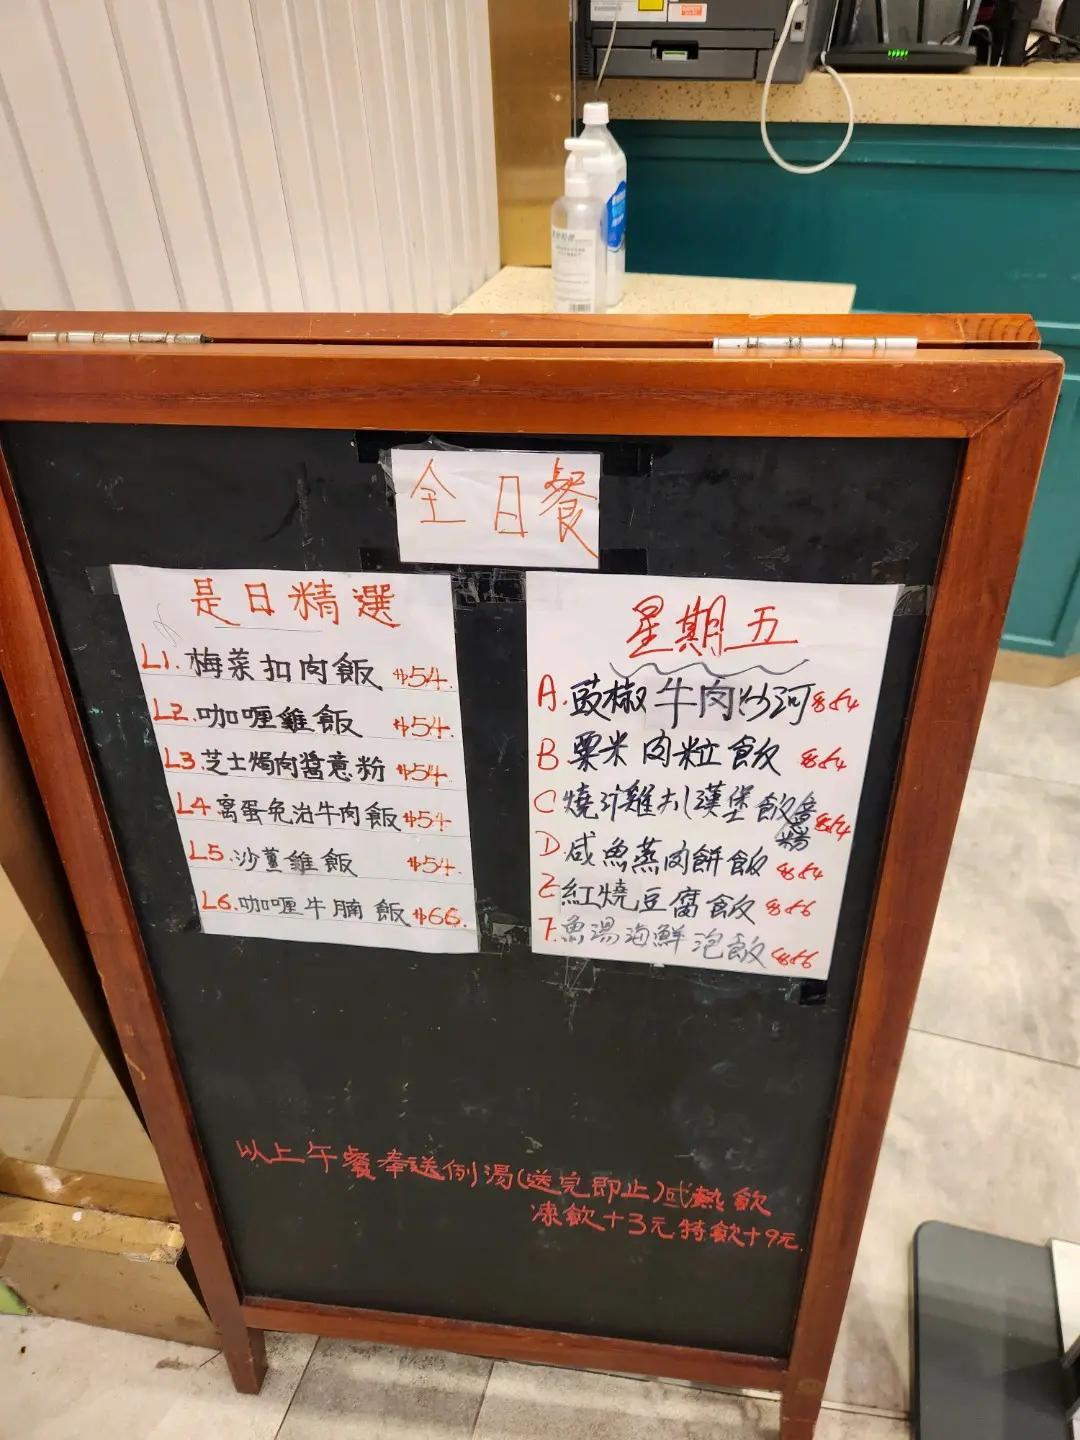 全日餐
是日精選
L1.梅菜扣肉飯 $54.
L2.咖喱雞飯 $54.
L3芝士焗肉醬意粉 $54
L4窩蛋免治牛肉飯 $54
L5.沙薑雞飯 $54.
L6.咖喱牛腩飯 $66.
星期五
A.豉椒牛肉炒河 $54
B 粟米肉粒飯 $54
C 燒汁雞扒漢堡飯意粉 $54
D.咸魚蒸肉餅飯 $54
E.紅燒豆腐飯 $56
F.魚湯海鮮泡飯 $56
以上午餐奉送例湯(送完即止)或熱飲
凍飲+3元特飲+9元.